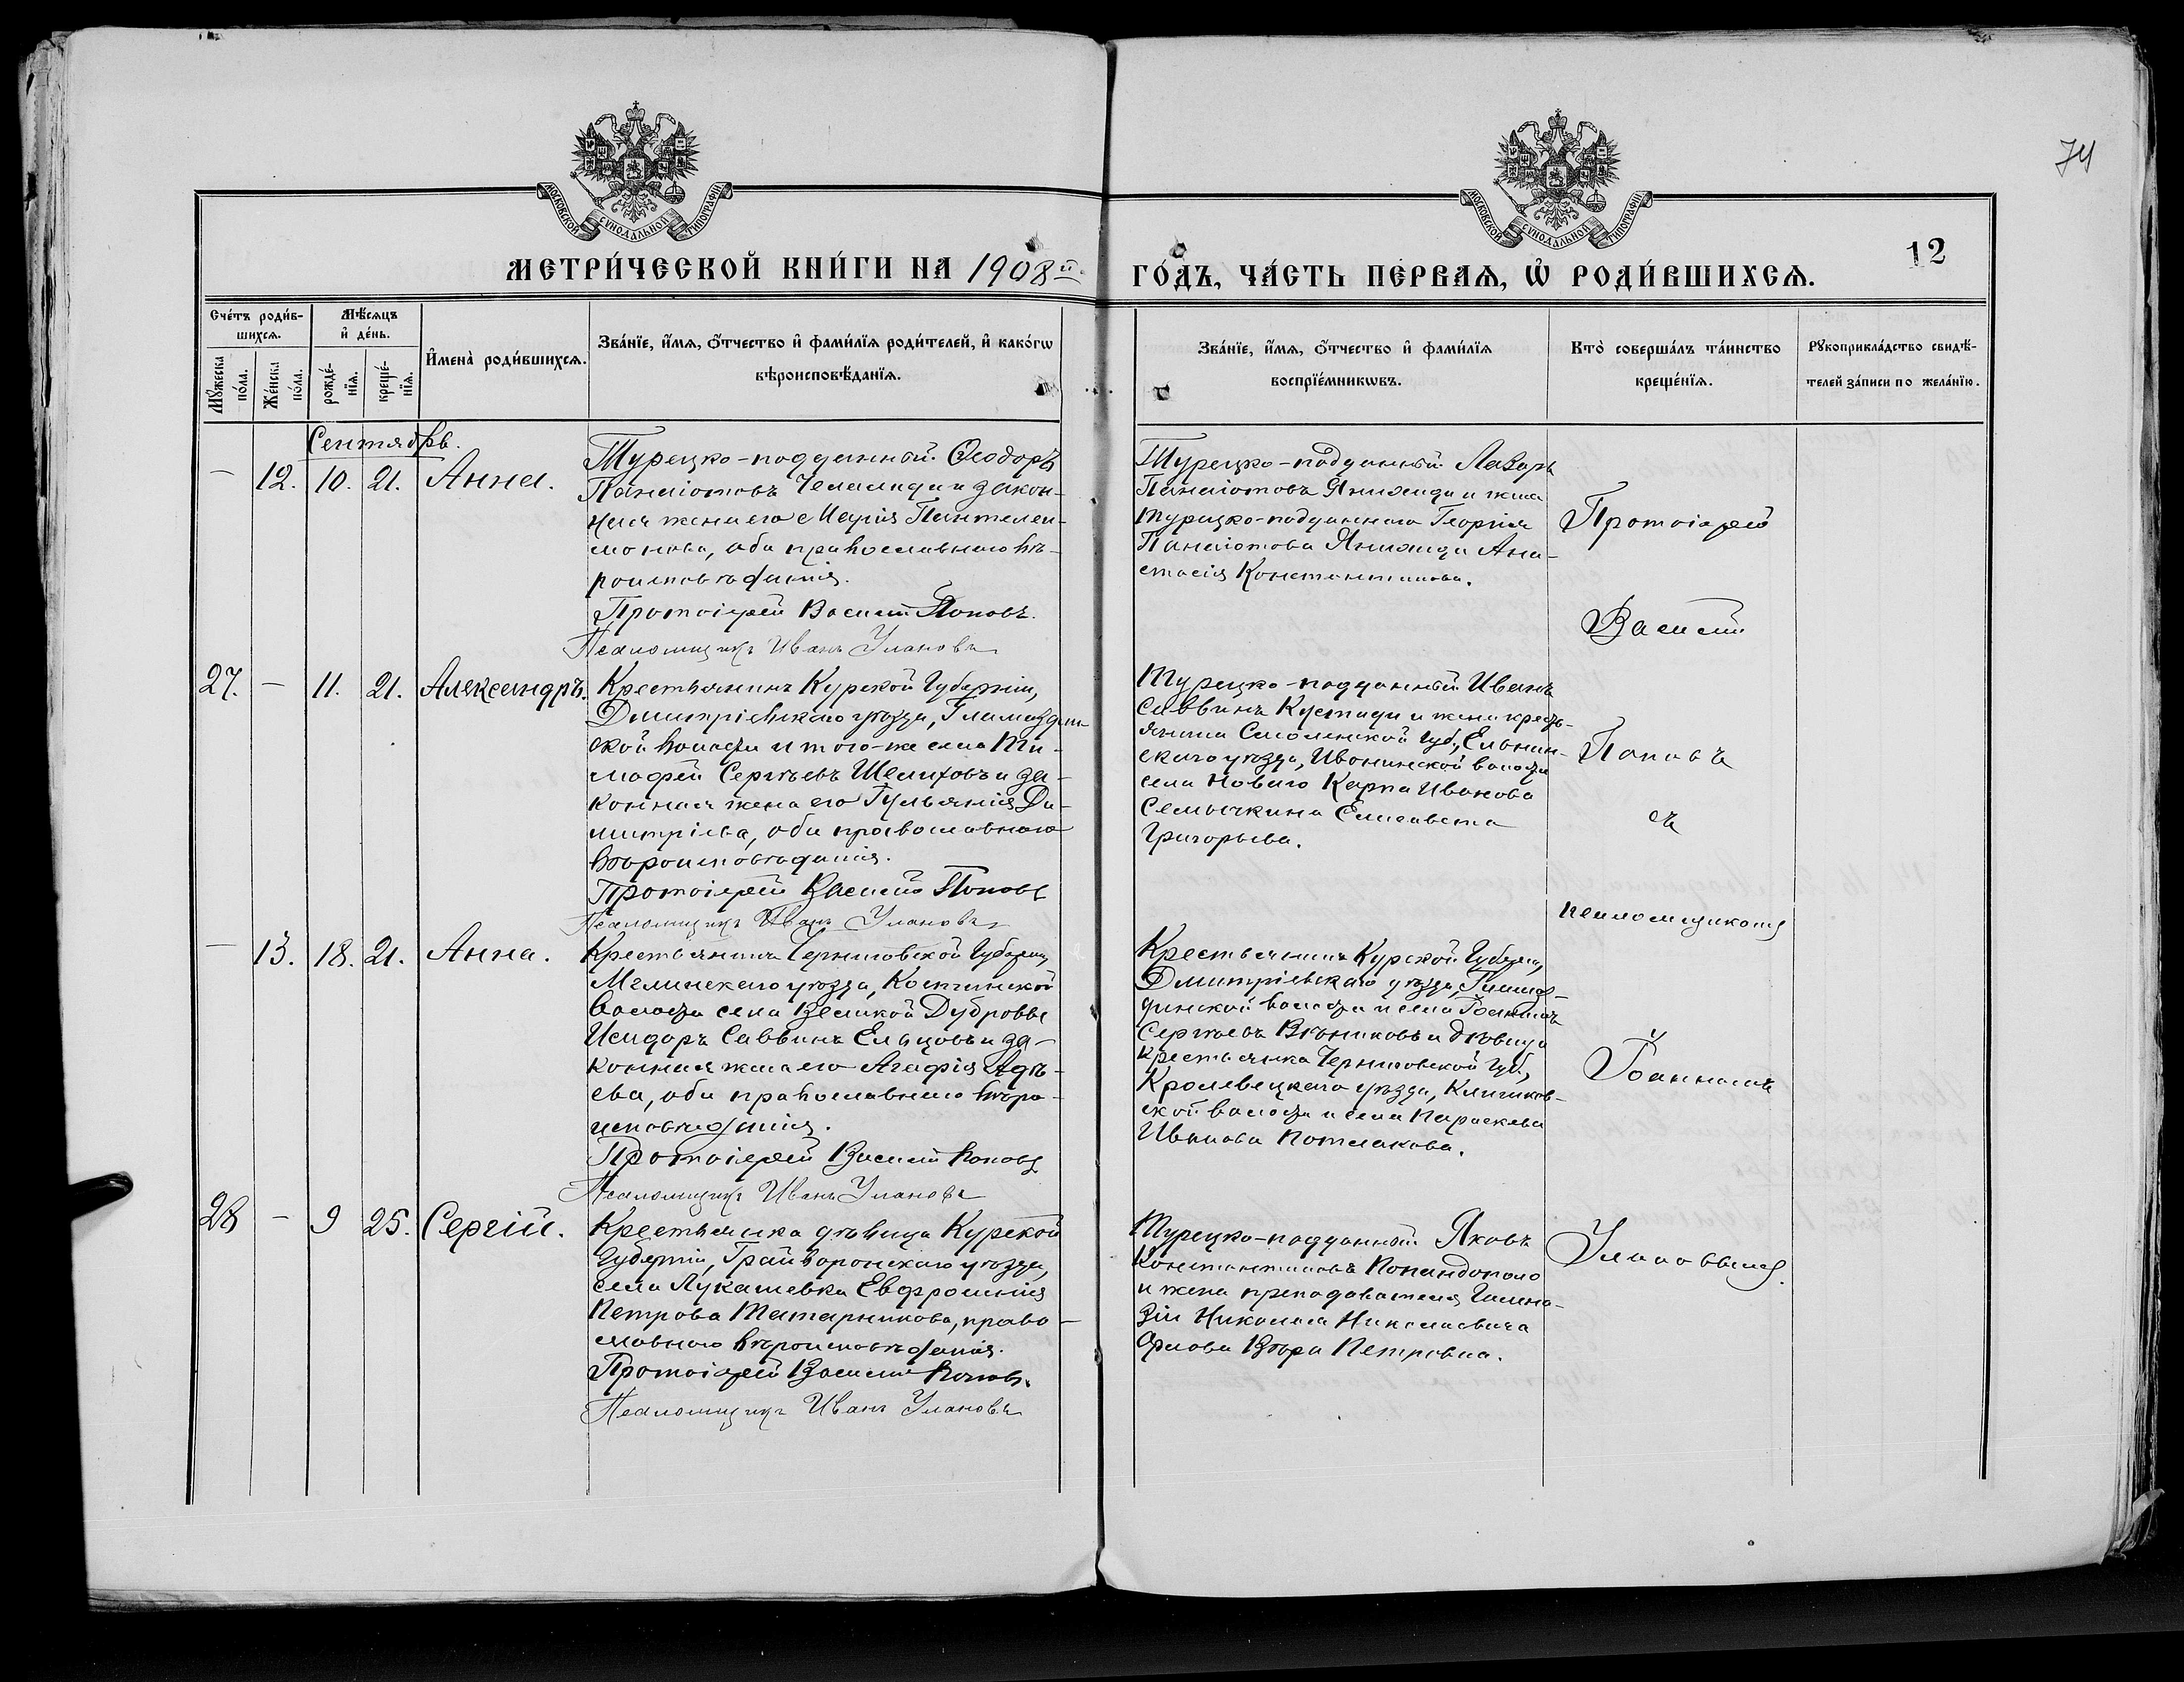 74
МОСКОВСКОЙ СѴНОДАЛЬНОЙ ТИПОГРАФІИ
МОСКОВСКОЙ СѴНОДАЛЬНОЙ ТИПОГРАФІИ
12
МЕТРИ́ЧЕСКОЙ КНИ́ГИ НА 1908й
ГО́ДЪ, ЧА́СТЬ ПЕ́РВАѦ, Ѡ҆ РОДИ́ВШИХСѦ.
Сче́тъ роди́в-
шихсѧ.
Мѣ́сѧцъ
и҆ де́нь.
Мꙋ́жеска
по́ла.
Же́нска
по́ла.
рожде́-
нїѧ.
креще́-
нїѧ.
И҆мена̀ роди́вшихсѧ.
Зва́нїе, и҆́мѧ, ѻ҆́тчество и҆ фами́лїѧ роди́телей, и҆ како́гѡ
вѣроисповѣ́данїѧ.
Зва́нїе, и҆́мѧ, ѻ҆́тчество и҆ фами́лїѧ
воспрїе́мникѡвъ.
Кто̀ соверша́лъ та́инство
креще́нїѧ.
Рꙋкоприкла́дство свидѣ́-
телей за́писи по жела́нїю.
Сентябрь.
— 12. 10. 21. Анна.
Турецко-подданный Ѳеодоръ
Панаіотовъ и закон-
ная жена его Марія Пантелей-
монова, оба православнаго вѣ-
роисповѣданія.
Протоіерей Василій Поповъ.
Псаломщикъ Иванъ Улановъ
Турецко-подданный Лазарь
Панаіотовъ Яниxиди и жена
турецко-подданнаго Георгія
Панаіотова Яниxиди Ана-
стасія Константинова.
27. — 11. 21. Александръ.
Крестьянинъ Курской Губерніи,
Дмитріевскаго уѣзда,
ской волости и того-же села Ти-
моѳей Сергѣевъ Шелиховъ и за-
конная жена его Гуліанія Ди-
митріева, оба православнаго
вѣроисповѣданія.
Протоіерей Василій Поповъ
Псаломщикъ Иванъ Улановъ
Турецко-подданный Иванъ
Саввинъ Кустиди и жена кресть-
янина Смоленской Губ., Ельнин-
скаго уѣзда, Ивонинской волости
села Новаго Карпа Иванова
Семычкина Елисавета
Григорьева.
— 13. 18. 21. Анна.
Крестьянинъ Черниговской Губерніи,
Мглинскаго уѣзда,
волости села Великой Дубровы
Исидоръ Саввинъ Ельцовъ и за-
конная жена его Агафія
ева, оба православнаго вѣро-
исповѣданія.
Протоіерей Василій Поповъ
Псаломщикъ Иванъ Улановъ
Крестьянинъ Курской Губерніи,
Дмитріевскаго уѣзда,
динской волости и села Іоаннъ
Сергѣевъ Вѣниковъ и дѣвица
крестьянка Черниговской Губ.,
Кролевецкаго уѣзда, Клишков-
ской волости и села Параскева
Иванова Потмакова.
28 — 9 25. Сергій.
Крестьянка дѣвица Курской
Губерніи, Грайворонскаго уѣзда,
села Лукашевка Евфросинія
Петрова Татарникова, право-
славнаго вѣроисповѣданія.
Протоіерей Василій Поповъ.
Псаломщикъ Иванъ Улановъ
Турецко-подданный Яковъ
Константиновъ Попандополо
и жена преподавателя Гимна-
зіи Николая Николаевича
Орлова Вѣра Петровна.
Протоіерей
Василій
Поповъ
съ
псаломщикомъ
Іоанномъ
Улановымъ.